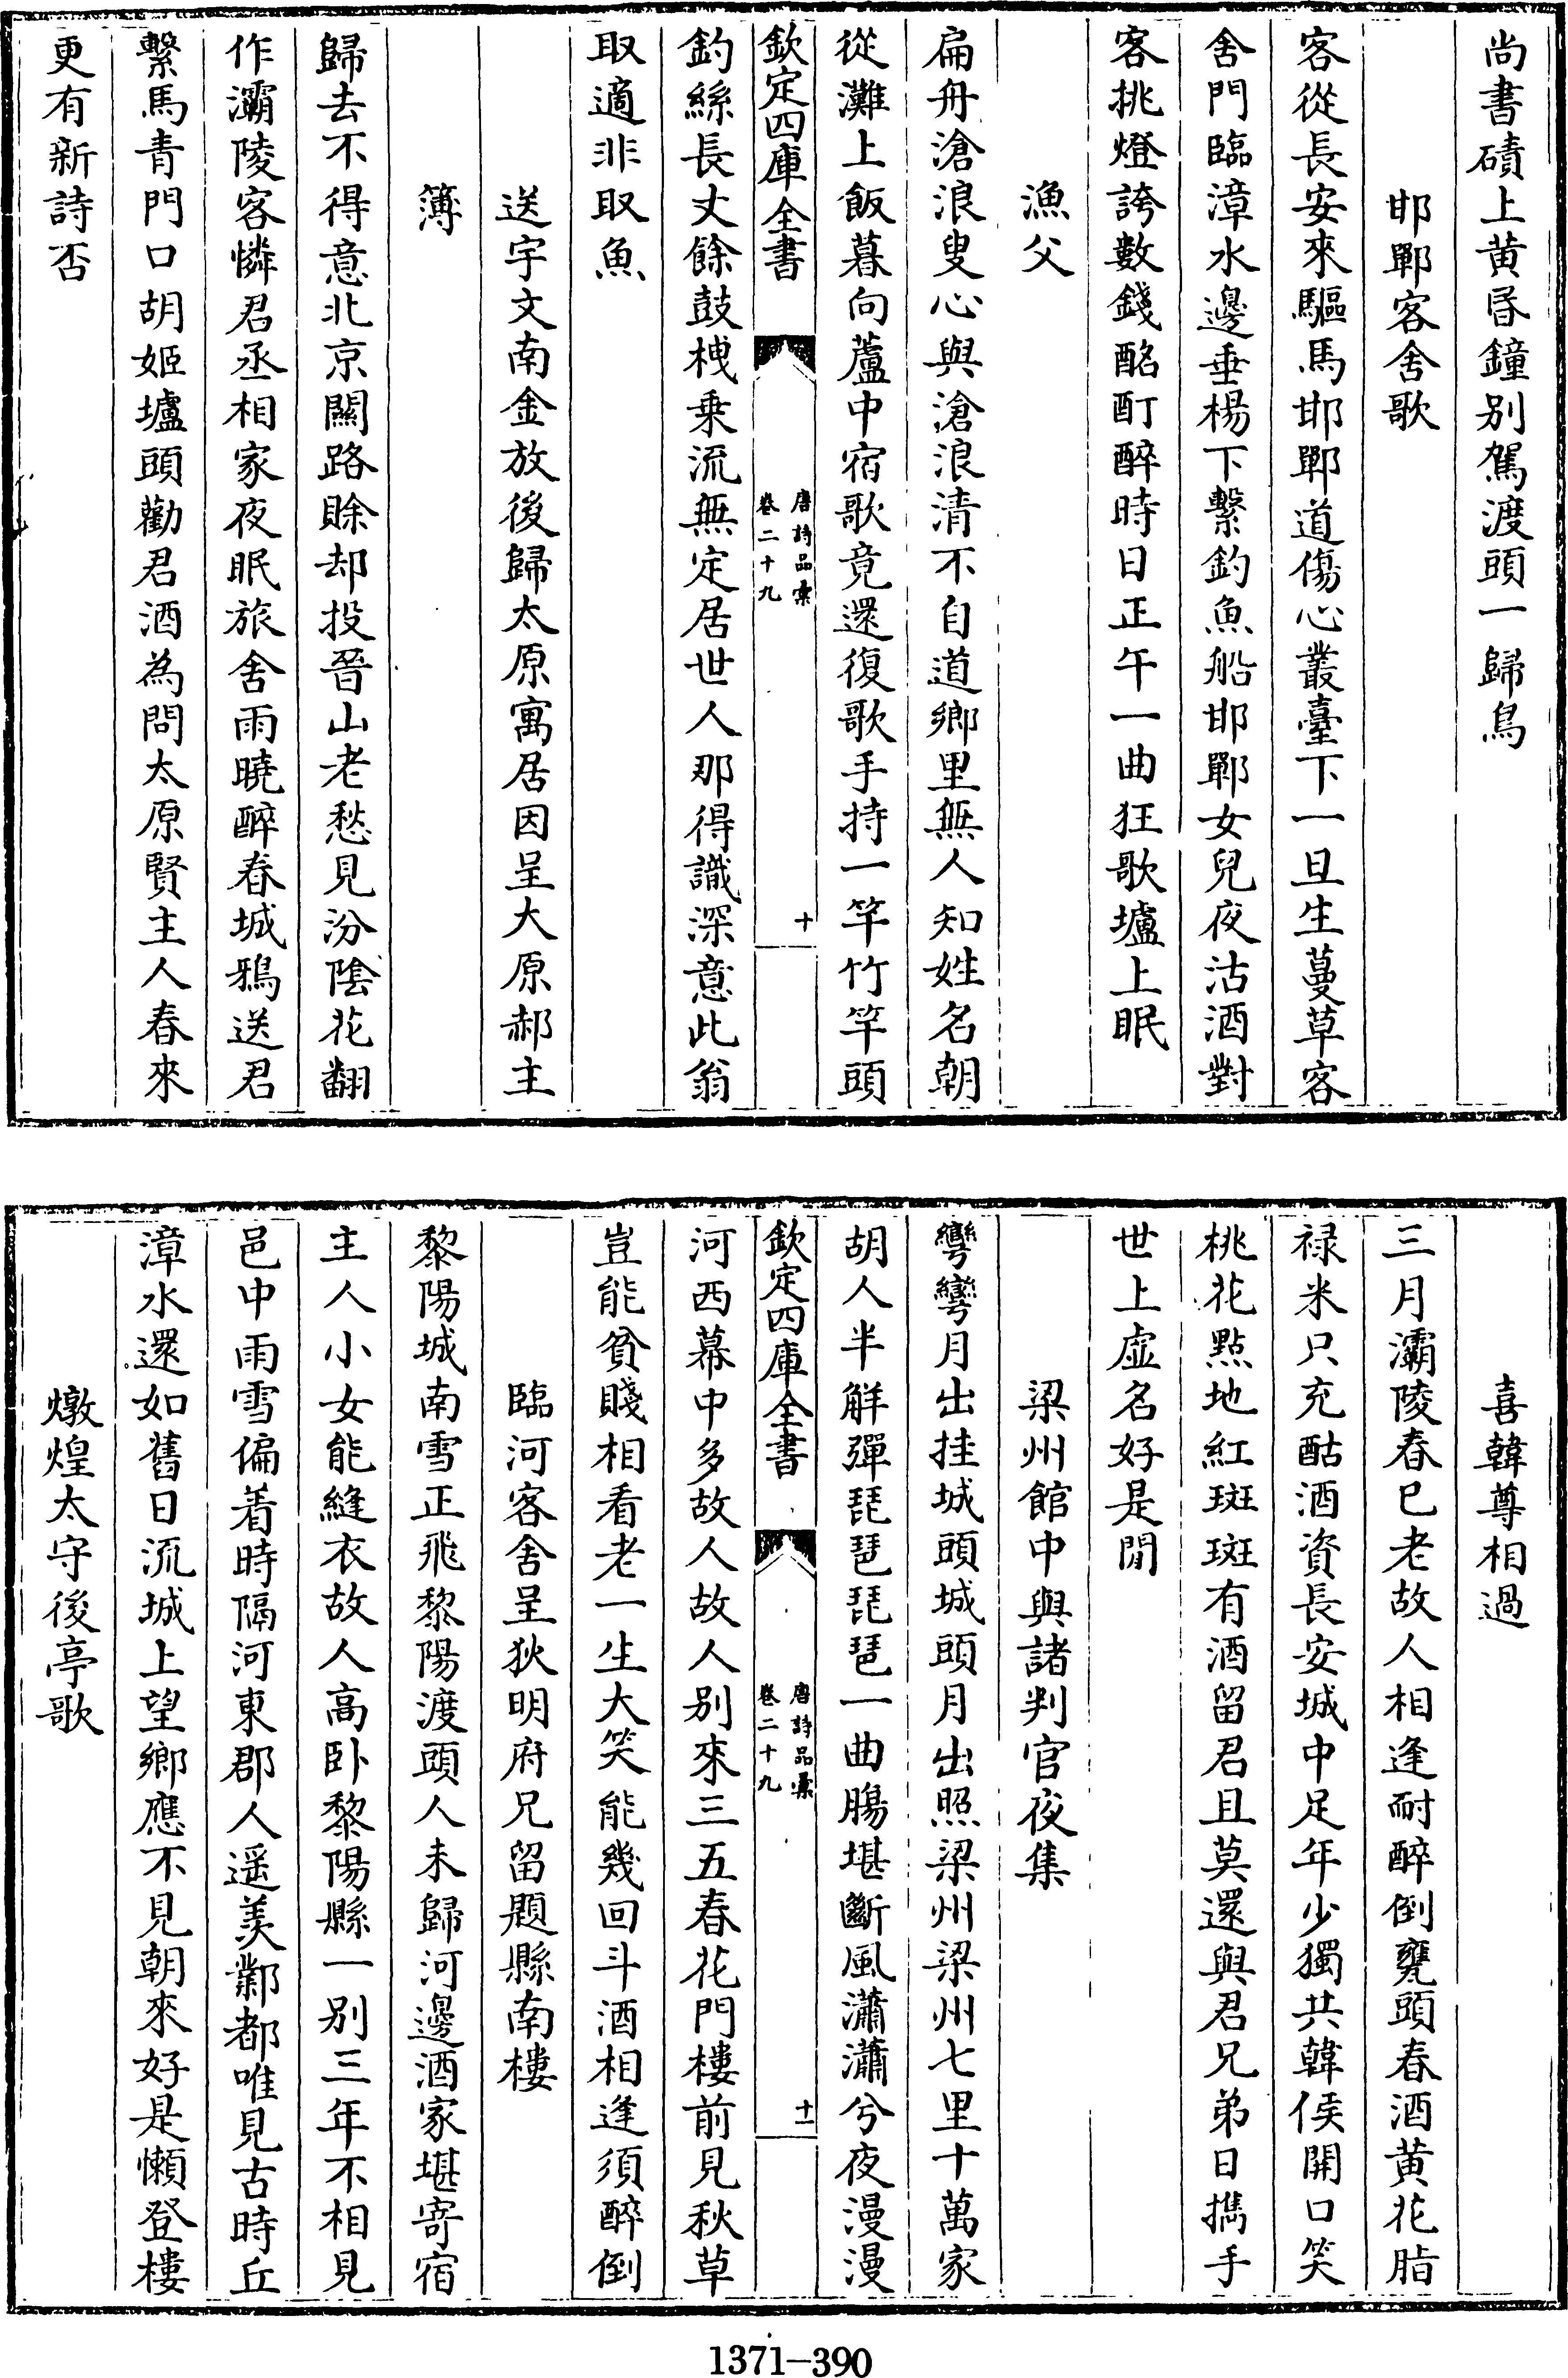 尚書磧上黄昏鐘别駕渡頭一歸鳥
邯鄲客舍歌
客從長安來驅馬邯鄲道傷心叢臺下一旦生蔓草客
舍門臨漳水邊垂楊下繫釣魚船邯鄲女兒夜沽酒對
客挑燈誇數錢酩酊醉時日正午一曲狂歌壚上眠
漁父
扁舟滄浪叟心與滄浪清不自道鄉里無人知姓名朝
從灘上飯暮向蘆中宿歌竟還復歌手持一竿竹竿頭
欽定四庫全書
唐詩品彚
卷二十九
十
釣絲長丈餘鼓枻乗流無定居世人那得識深意此翁
取適非取魚
送宇文南金放後歸太原寓居因呈大原郝主
簿
歸去不得意北京關路賒却投晉山老愁見汾陰花翻
作灞陵客憐君丞相家夜眠旅舍雨曉醉春城鴉送君
繫馬青門口胡姬壚頭勸君酒為問太原賢主人春來
更有新詩否
喜韓尊相過
三月灞陵春已老故人相逢耐醉倒甕頭春酒黄花脂
禄米只充酤酒資長安城中足年少獨共韓侯開口笑
桃花㸃地紅斑斑有酒留君且莫還與君兄弟日擕手
世上虛名好是閒
梁州館中與諸判官夜集
彎彎月出挂城頭城頭月出照梁州梁州七里十萬家
胡人半觧彈琵琶琵琶一曲腸堪斷風瀟瀟兮夜漫漫
欽定四庫全書
唐詩品彚
卷二十九
十一
河西幕中多故人故人别來三五春花門樓前見秋草
豈能貧賤相看老一生大笑能幾回斗酒相逢須醉倒
臨河客舍呈狄明府兄留題縣南樓
黎陽城南雪正飛黎陽渡頭人未歸河邊酒家堪寄宿
主人小女能縫衣故人高卧黎陽縣一别三年不相見
邑中雨雪偏着時隔河東郡人遥羡鄴都唯見古時丘
漳水還如舊日流城上望鄉應不見朝來好是懶登樓
燉煌太守後亭歌
1371-390